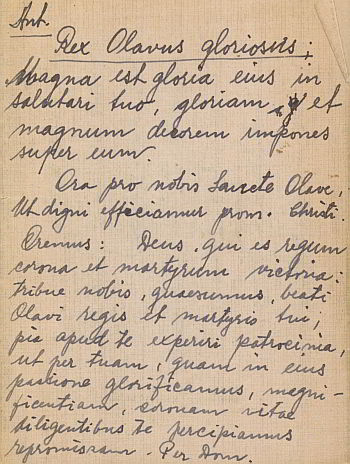 Ant.
Rex Olavus gloriosus;
Magna est gloria eius in
salutari tuo, gloriam et
magnum decorem impones
super eum.
Ora pro nobis Sancte Olave,
Ut digni efficiamur prom. Christi.
Oremus: Deus, qui es regum
corona et martyrum victoria:
tribue nobis, quaesumus, beati
Olavi regis et martyris tui,
pia apud te experiri patrocinia,
ut per tuam, quam in eius
passione glorificamus, magni-
ficentiam, coronam vitae
diligentibus te percipiamus
repromissam. Per Dom.